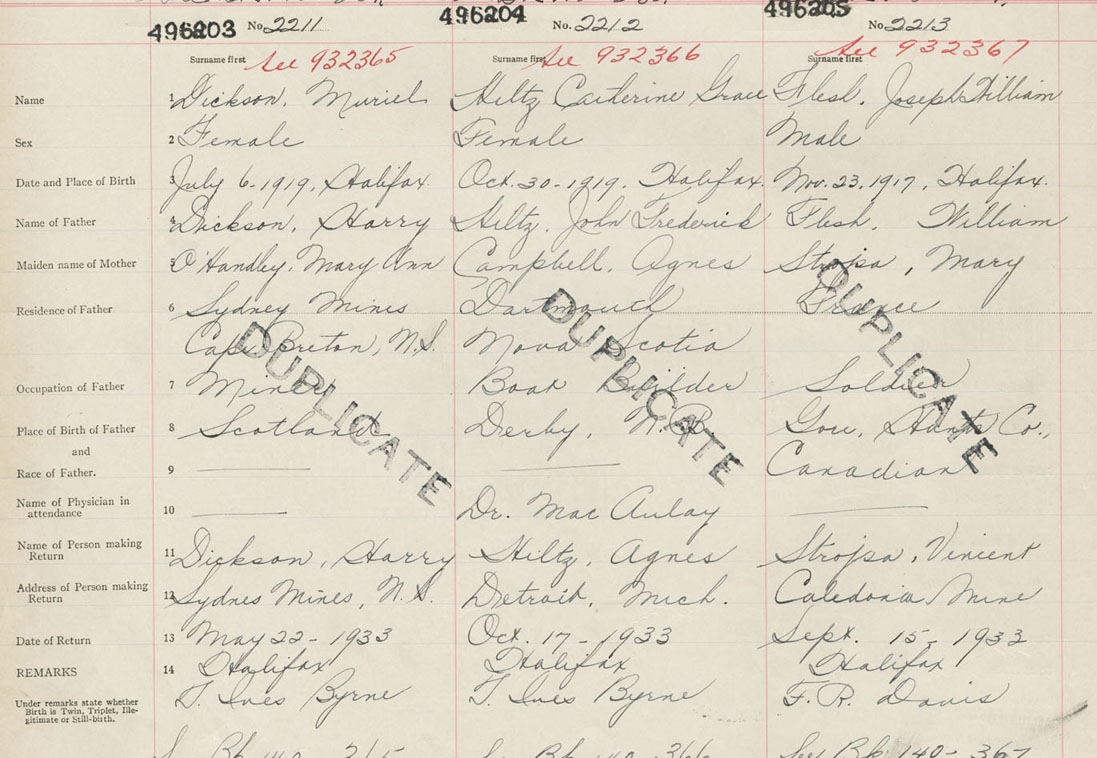 496203 No. 2211 496204 No. 2212 496205 No. 2213
Surname first See 932365 Surname first See 932366 Surname first See 932367
Name 1 Dickson, Muriel Hiltz Catherine Grace Flesh, Joseph William
Sex 2 Female Female Male
Date and Place of Birth 3 July 6-1919, Halifax. Oct. 30-1919. Halifax. Nov. 23, 1917, Halifax.
Name of Father 4 Dickson, Harry Hiltz, John Frederick Flesh, William
Maiden name of Mother 5 O'Handley, Mary Ann Campbell, Agnes Strojsa, Mary
Residence of Father 6 Sydney Mines Dartmouth France
Cape Breton, N.S. Nova Scotia
DUPLICATE DUPLICATE DUPLICATE
Occupation of Father 7 Miner Boat Builder Soldier
Place of Birth of Father 8 Scotland Derby, N.B. Hants Co.,
and
Race of Father. 9 Canadian
Name of Physician in
attendance 10 Dr. Mac Aulay
Name of Person making
Return 11 Dickson, Harry Hiltz, Agnes Strojsa, Vincent
Address of Person making
Return 12 Sydney Mines, N.S. Detroit, Mich. Caledonia Mine
Date of Return 13 May 22-1933 Oct. 17-1933 Sept. 15, 1933
REMARKS 14 Halifax Halifax Halifax
Under remarks state whether
Birth is Twin, Triplet, Ille-
gitimate or Still-birth.
T. Ives Byrne T. Ives Byrne F. R. Davis
See Bk 140-365 See Bk 140-366 See Bk 140-367